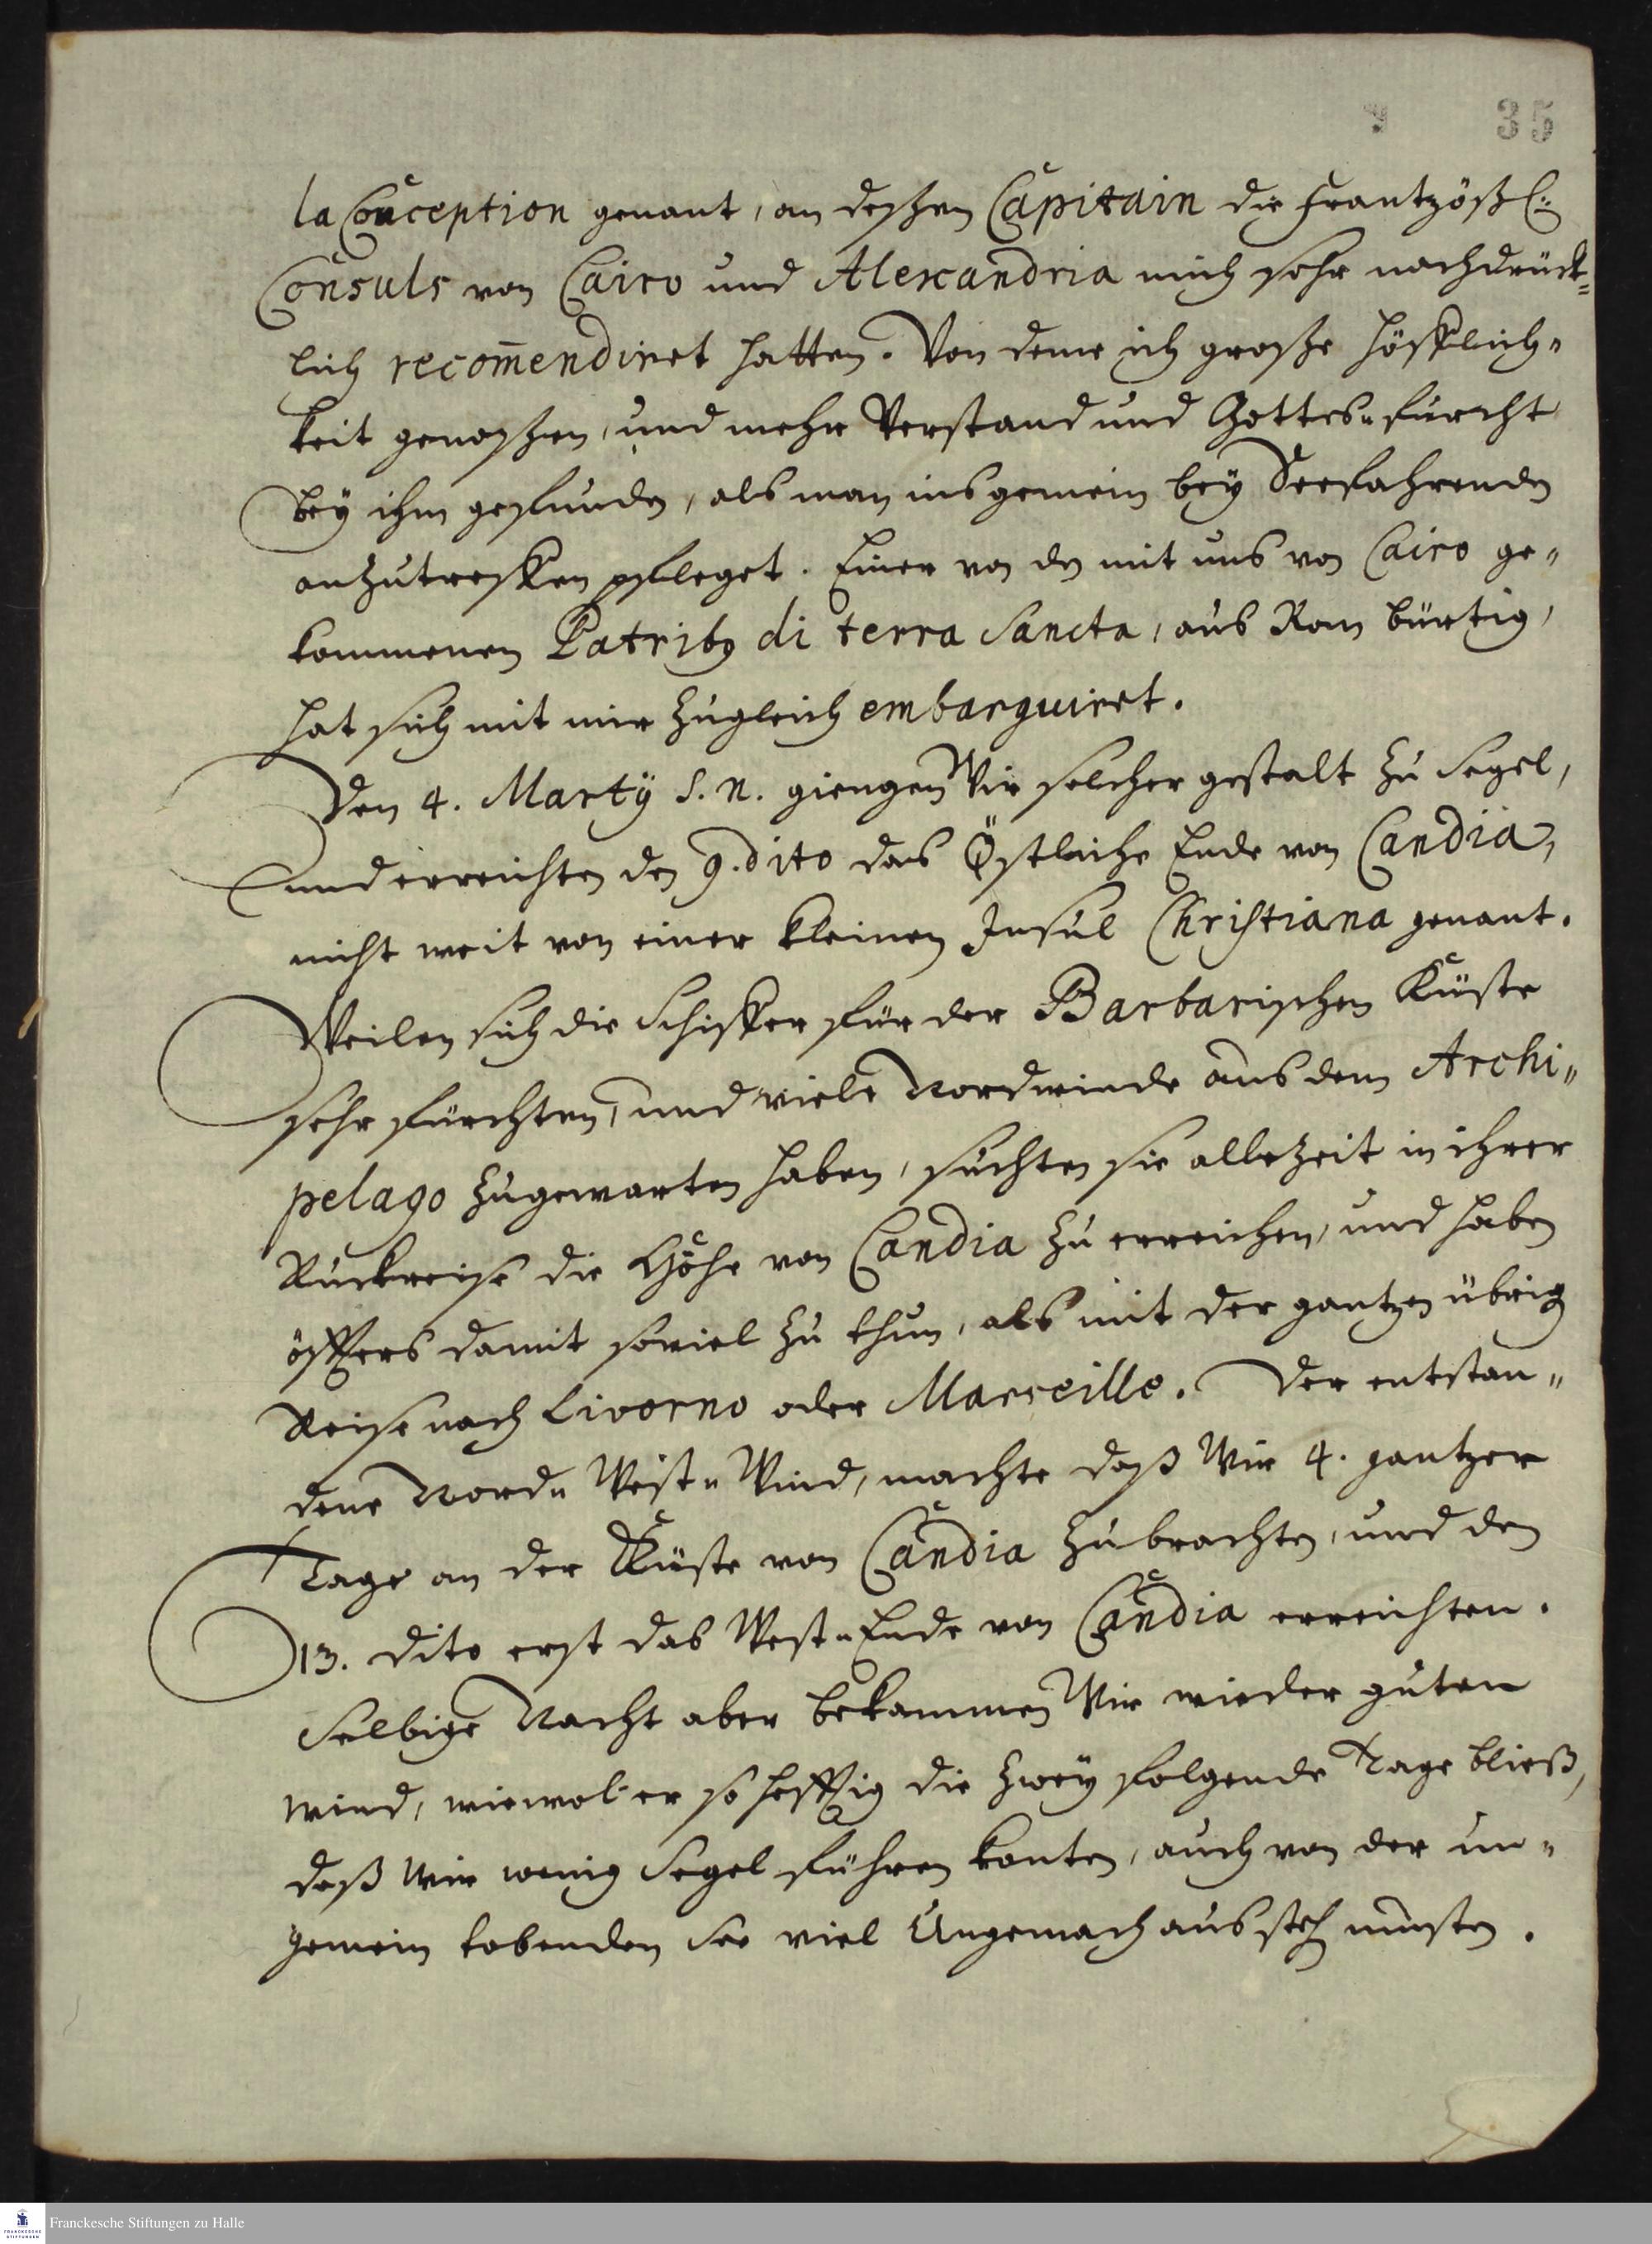 35
la Conception genant, an deßen Capitain die Frantzößl:
Consuls von Cairo und Alexandria mich sehr nachdrück=
lich recom̄endiret hatten. Von deme ich große Höfflich=
keit genoßen, und mehr Verstand und Gottes=furcht
bey ihm gefunden, als man ins gemein bey Seefahrenden
anzutreffen pfleget. Einer von den mit uns von Cairo ge=
kommenen Patribꝫ di terra Sancta, aus Rom bürtig,
hat sich mit mir zugleich embarquiret.
Den 4. Martÿ S. N. giengen Wir solcher gestalt zu Segel,
und erreichten den 9. dito das Östliche Ende von Candia,
nicht weit von einer kleinen Insul Christiana genant.
Weilen sich die Schiffer für der Barbarischen Küste
sehr fürchten, und viele Nordwinde aus dem Archi=
pelago zugewarten haben, suchten sie allezeit in ihrer
Ruckreise die Höhe von Candia zu erreichen, und haben
öffters damit soviel zu thun, als mit der gantzen übrig
Reise nach Livorno oder Marseille. Der entstan=
dene Nord= West= Wind, machte daß Wir 4. gantzer
Tage an der Küste von Candia zubrachten, und den
13. dito erst das West=Ende von Candia erreichten.
Selbige Nacht aber bekammen Wir wieder guten
wind, wiewol er so hefftig die zwey folgende Tage bließ,
daß Wir wenig Segel führen konten, auch von der un=
gemein tobenden See viel Ungemach ausstehn musten.
Franckesche Stiftungen zu Halle